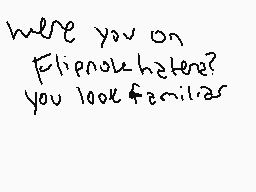 were you on
Flipnote hatena?
you look familiar